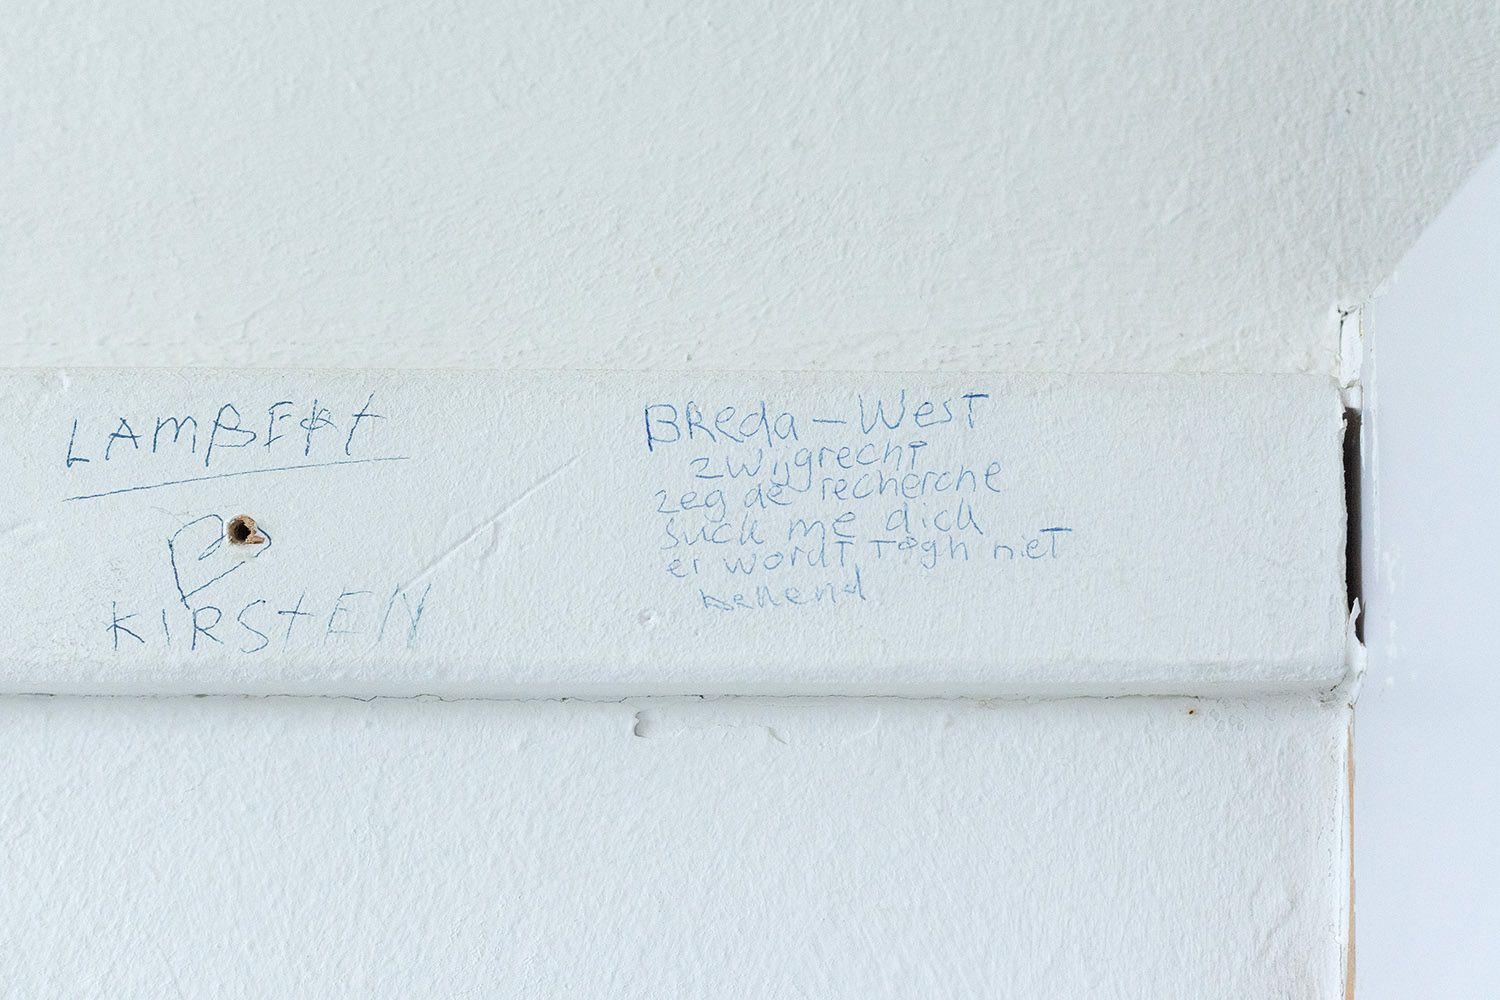 LAMBERt
KIRStEN
BReda - WesT
zwijgrecht
zeg de recherche
suck me dick
er wordT Togh nieT
bekend